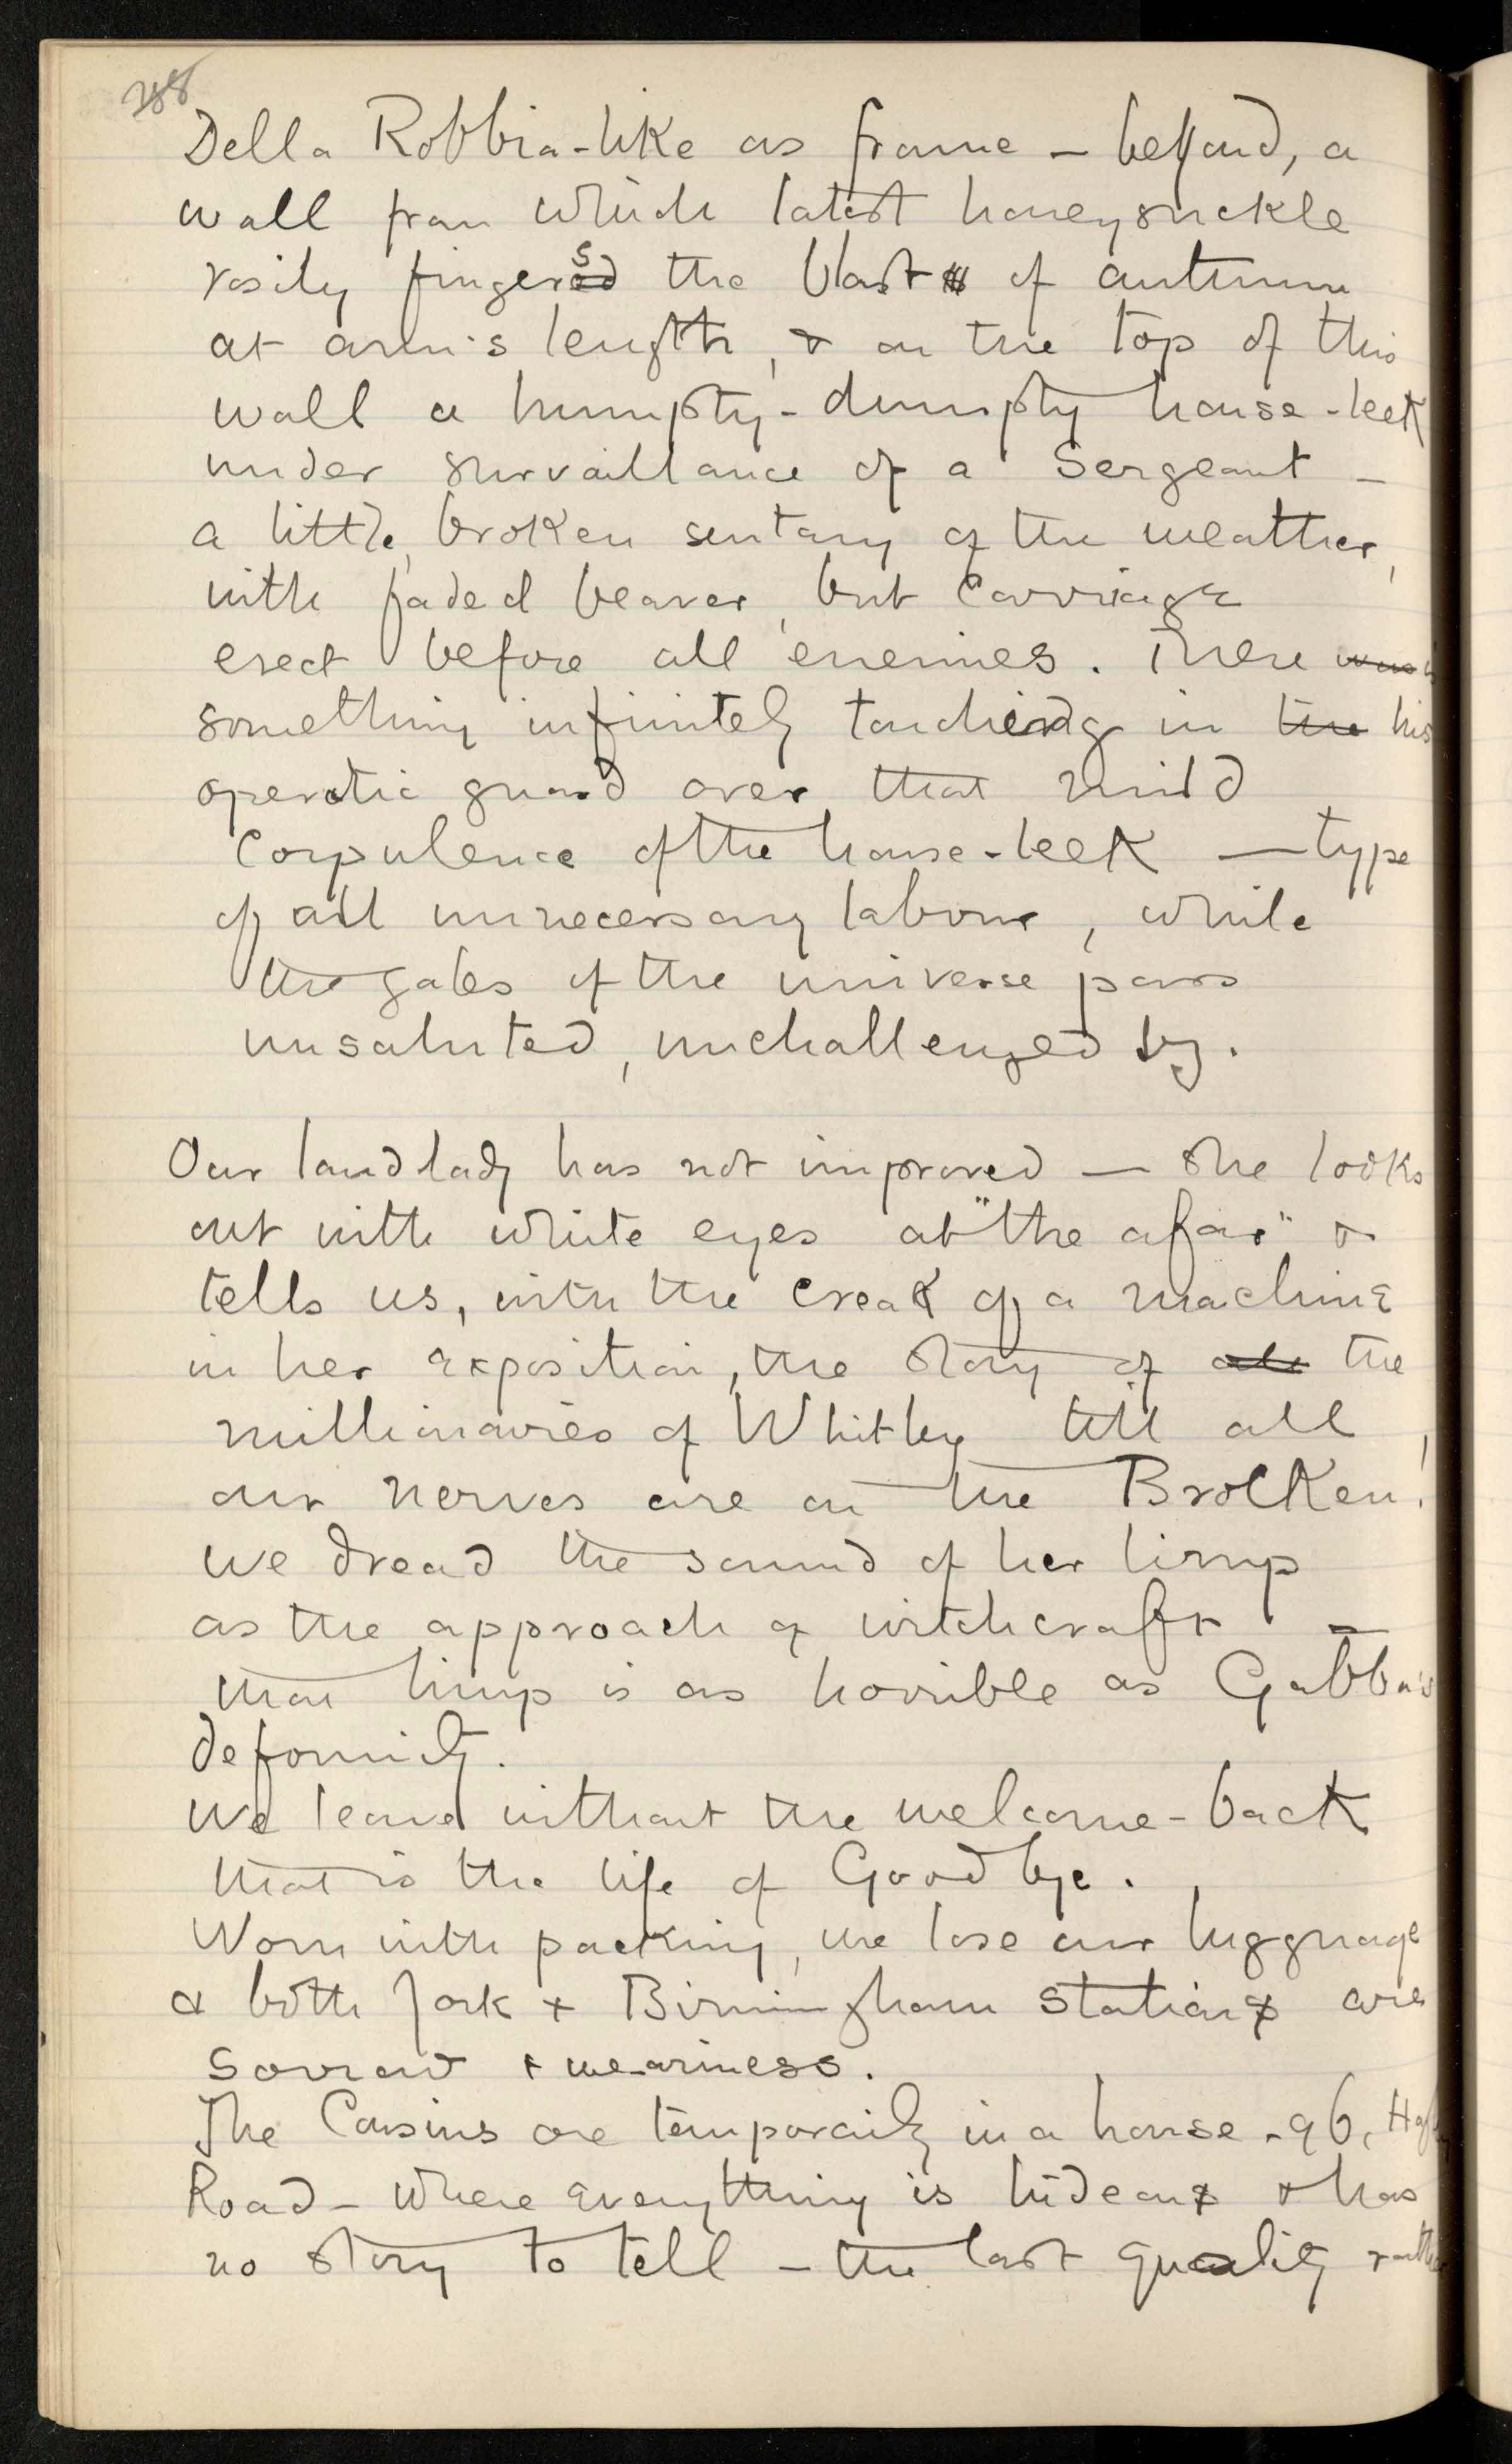 288
Della Robbia-like as frame — beyond, a
wall from which latest honeysuckle
rosily fingers the blast of autumn
at arm's length, & on the top of this
wall a humpty-dumpty house-leek
under survaillance of a Sergeant —
a little, broken sentary of the weather,
with faded beaver, but carriage
erect before all enemies. There was
something infinitely touching in the his
operatic guard over that mild
corpulence of the house-leek — type
of all unnecessary labour, while
the gales of the universe pass
unsaluted, unchallenged by.
Our landlady has not improved — she looks
out with white eyes at "the afar" &
tells us, with the creak of a machine
in her exposition, the story of the
millionaires of Whitby till all
our nerves are on the Brocken!
We dread the sound of her limp
as the approach of witchcraft —
that limp is as horrible as Gabba's
deformity.
We leave without the welcome-back
that is the life of Goodbye.
Worn with packing, we lose our luggage
& both York & Birmingham stations are
sorrow & weariness.
The Cousins are temporaily in a house - 96,
Road - where everything is hideous & has
no story to tell — the last quality